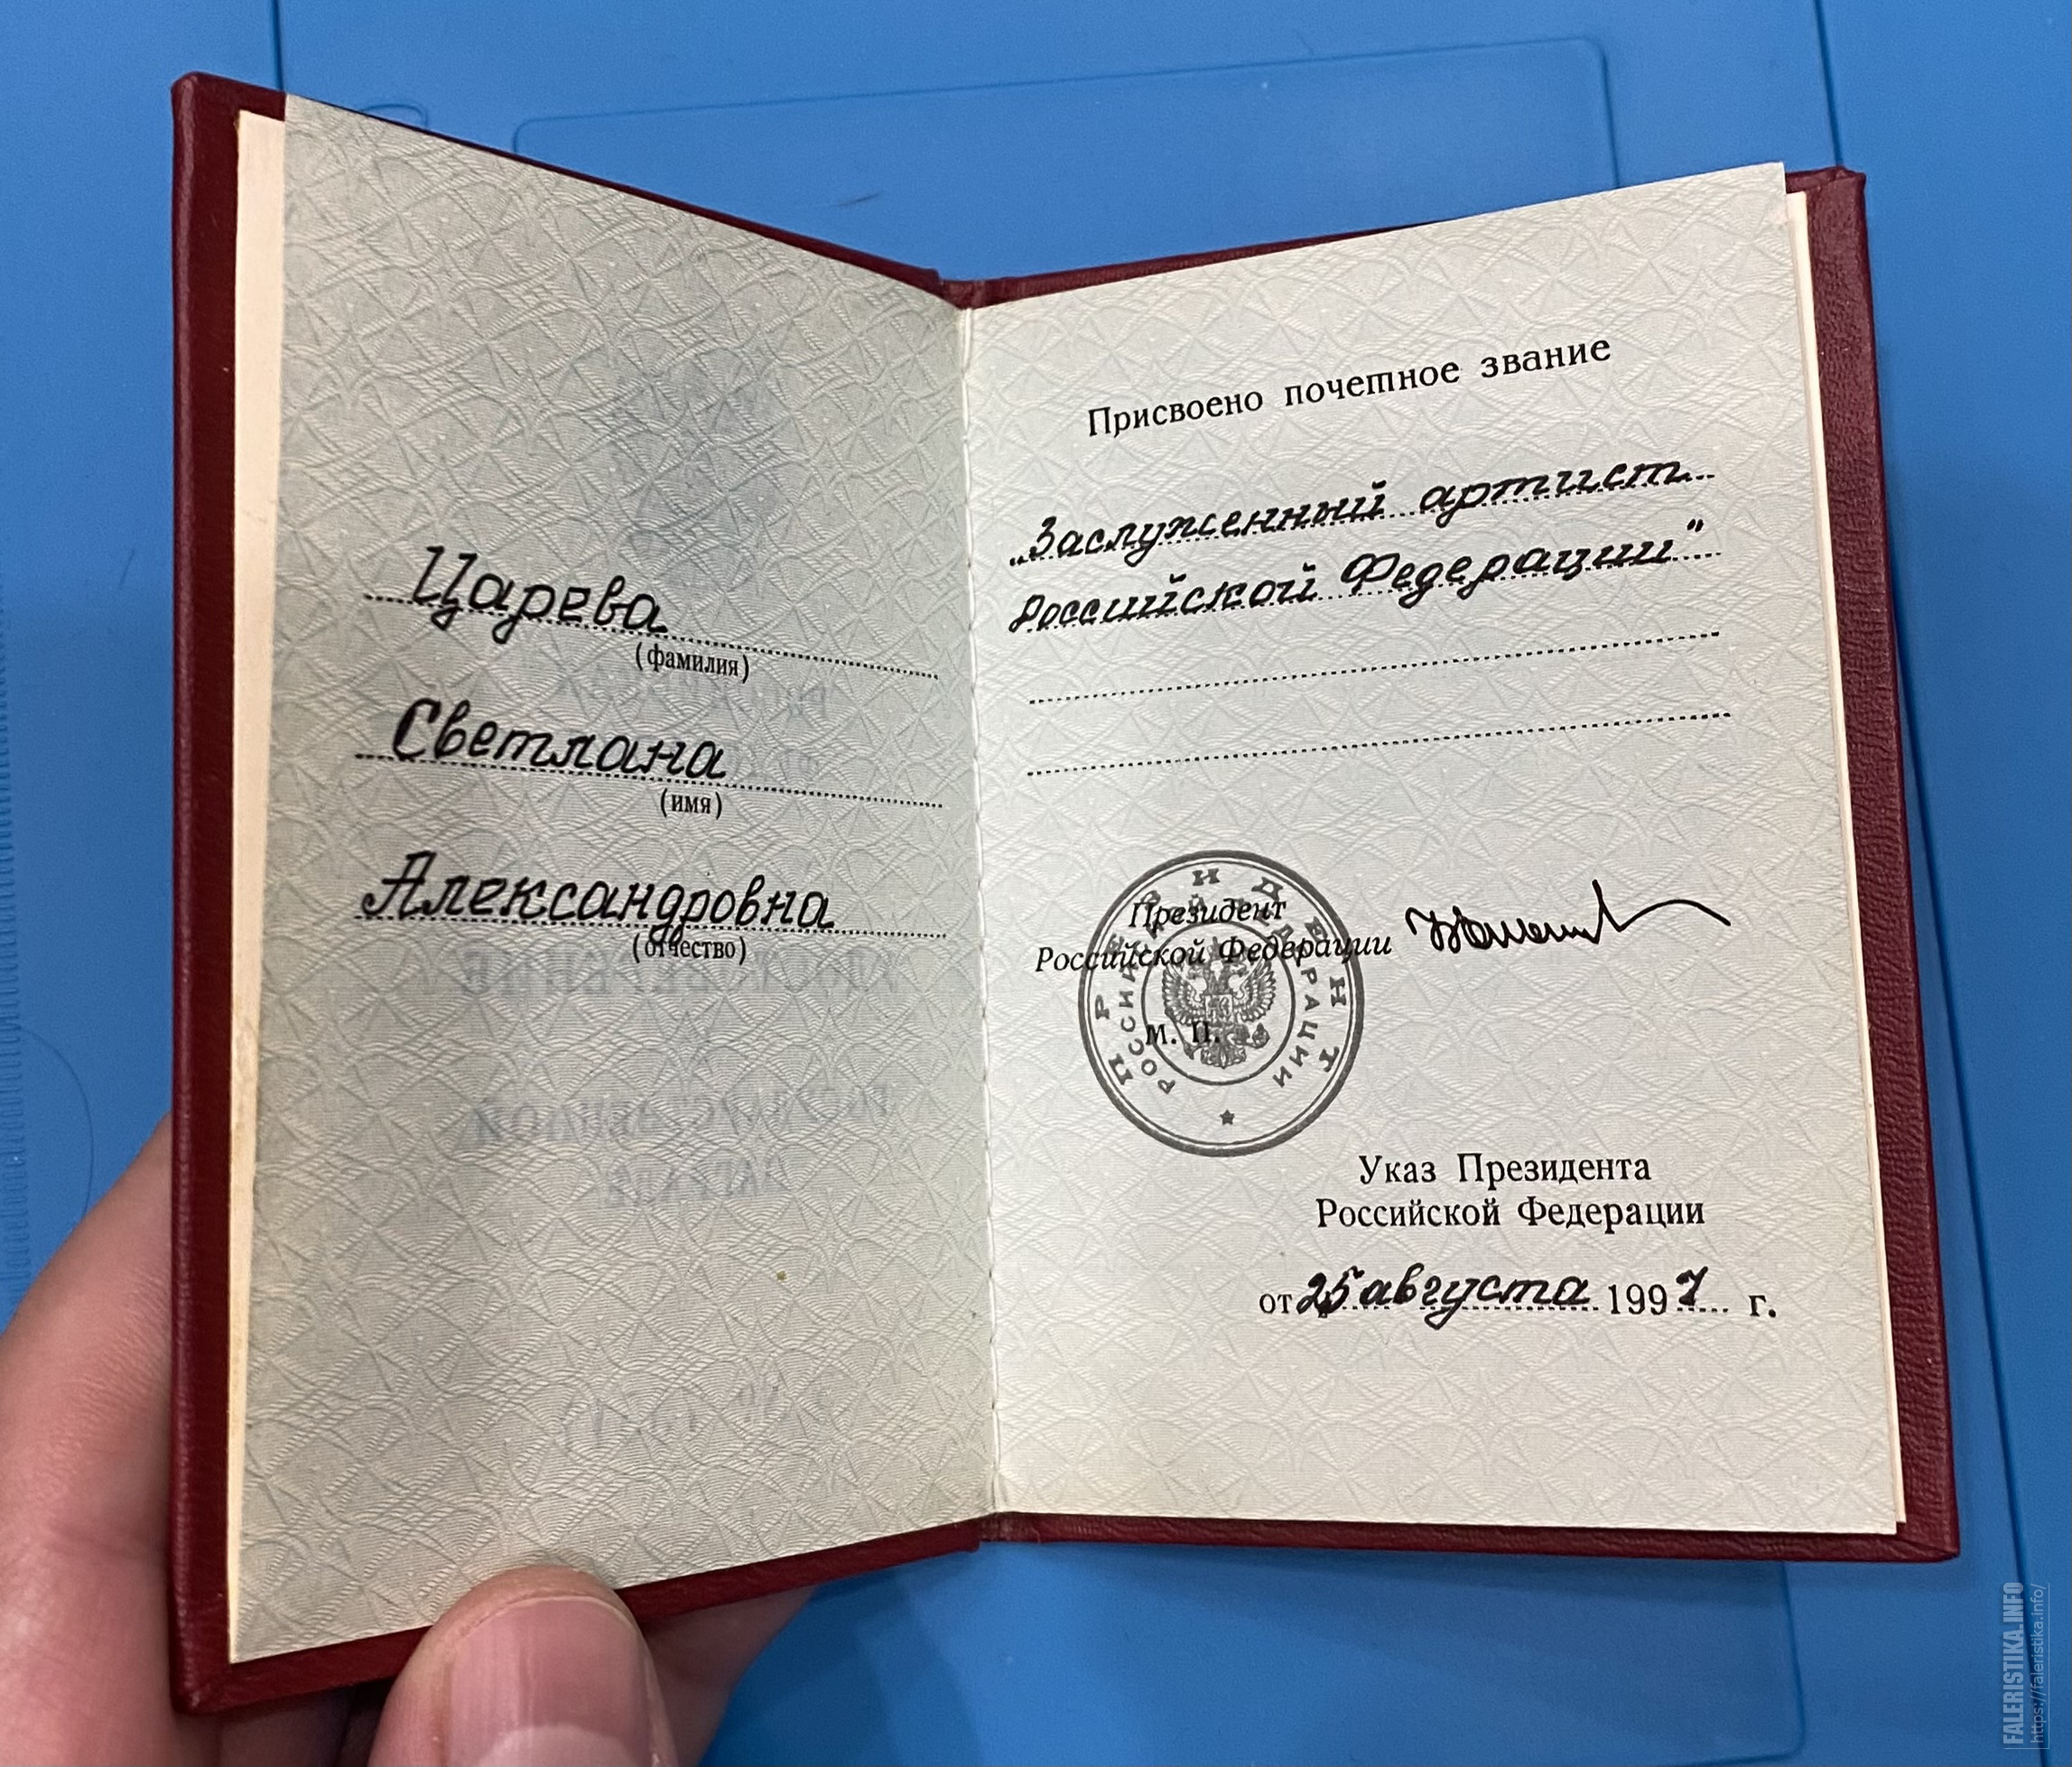 Царева
(фамилия)
Светлана
(имя)
Александровна
(отчество)
Присвоено почетное звание
„Заслуженный артист
Российской Федерации"
Президент
Российской Федерации
М. П.
ПРЕЗИДЕНТ
РОССИЙСКОЙ ФЕДЕРАЦИИ
Указ Президента
Российской Федерации
от 25 августа 1997 г.
FALERISTIKA.INFO
https://faleristika.info/